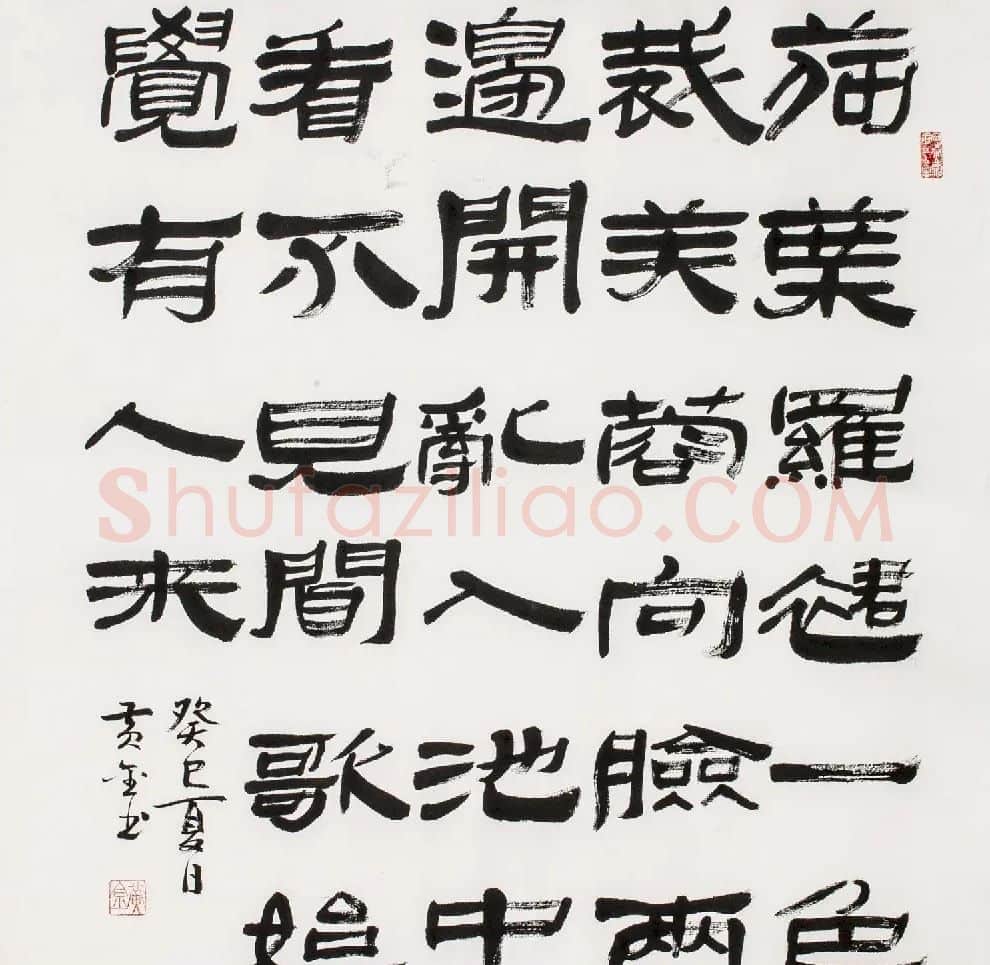 荷葉羅裙一色
裁芙蓉向臉兩
邊開亂入池中
看不見聞歌始
覺有人来
癸巳夏日
黄金书
Shufaziliao.COM